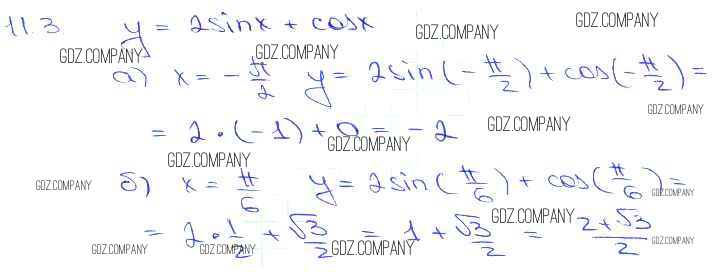 11.3 y = 2sinx + cosx GDZ.COMPANY GDZ.COMPANY
GDZ.COMPANY GDZ.COMPANY
а) x = -π/2 y = 2sin(-π/2) + cos(-π/2) =
GDZ.COMPANY
= 2·(-1) + 0 = -2 GDZ.COMPANY
GDZ.COMPANY
GDZ.COMPANY
GDZ.COMPANY б) x = π/6 y = 2sin(π/6) + cos(π/6) = GDZ.COMPANY
= 2·1/2 + √3/2 = 1 + √3/2 = (2+√3)/2 GDZ.COMPANY
GDZ.COMPANY GDZ.COMPANY GDZ.COMPANY GDZ.COMPANY